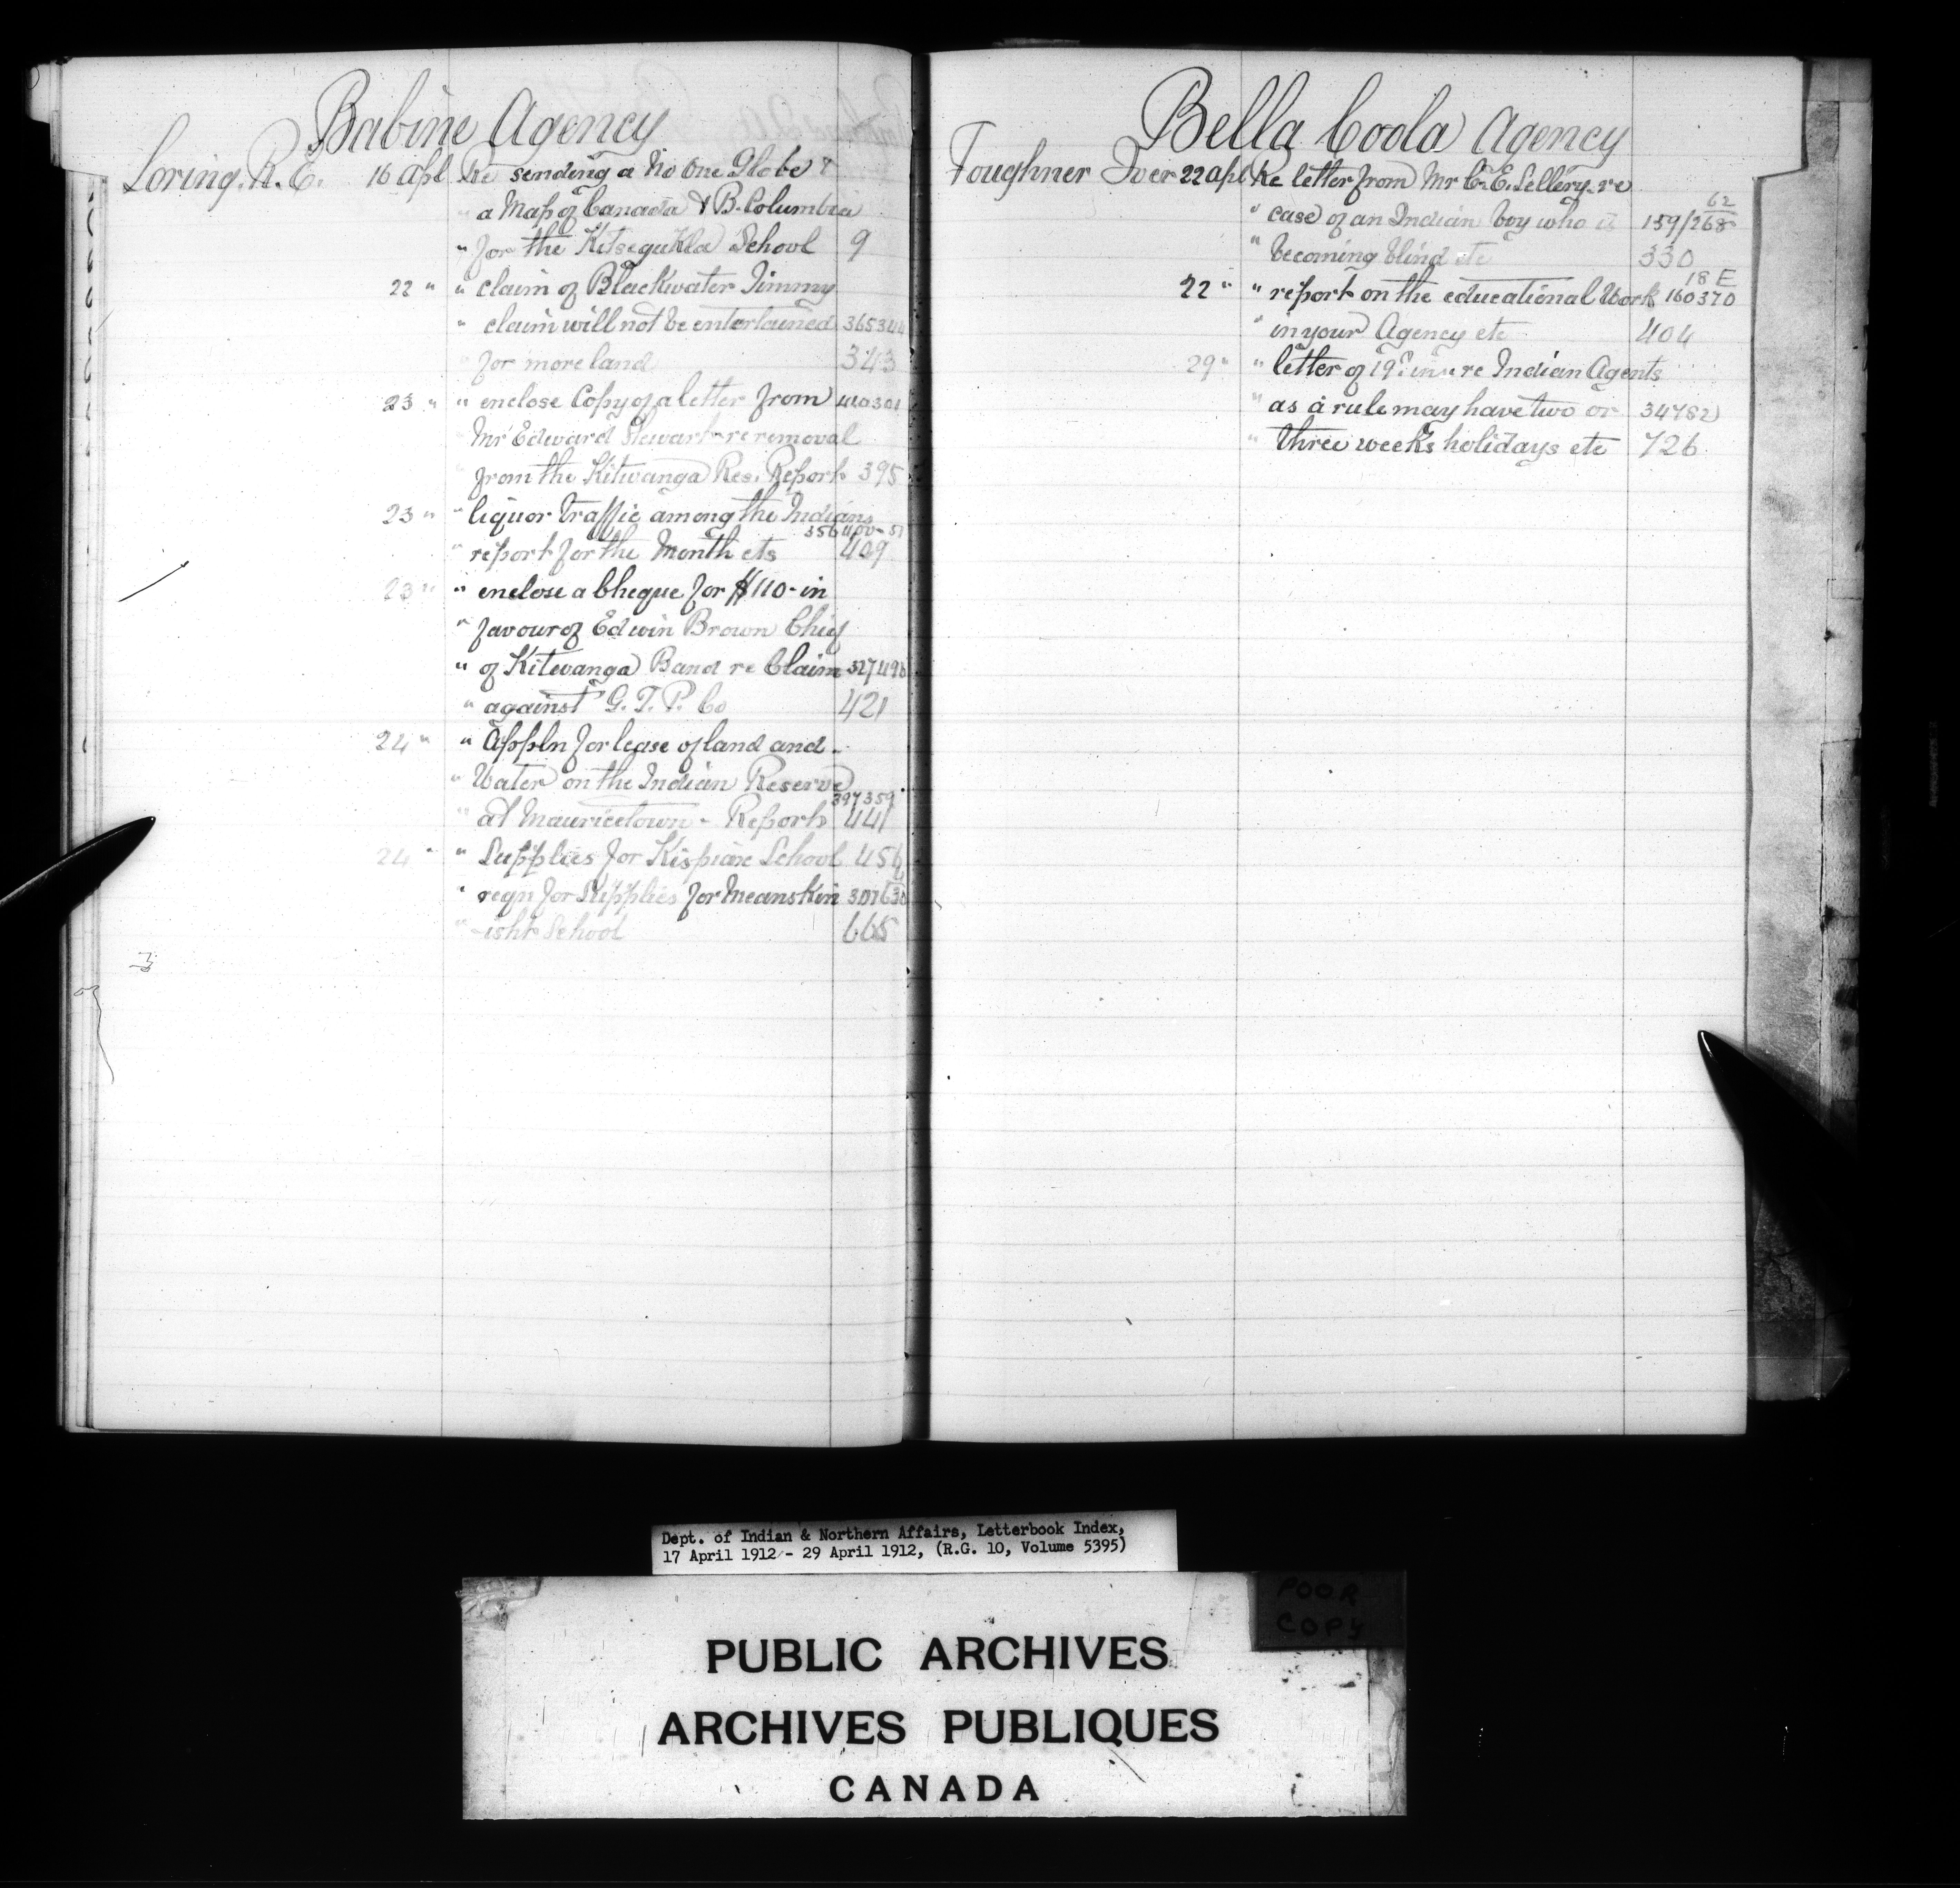 Babine Agency
Loring. R. E. 16 Apl Re sending a No One Globe &
" a Map of Canada & B. Columbia
" for the Kitsegukla School 9
22 " " claim of Blackwater Jimmy
" claim will not be entertained
" for more land 343
23 " " enclose Copy of a letter from
" Mr Edward Stewart re removal
" from the Kitwanga Res. Report 395
23 " " liquor traffic among the Indians
" report for the Month etc 409
23 " " enclose a Cheque for $110- in
" favour of Edwin Brown Chief
" of Kitwanga Band re Claim
" against G. T. P. Co 421
24 " " Appln for lease of land and
" Water on the Indian Reserve
397359
" at Mauricetown - Report 441
24 " " Supplies for Kispiax School 456
" reqn for Supplies for Meanskin
" -isht School 665
Bella Coola Agency
Foughner Iver 22 apl Re letter from Mr C. E. Sellery re
62
" case of an Indian boy who is 159/268
" becoming blind etc 330
18 E
22 " " report on the educational Work 160370
" in your Agency etc 404
29 " " letter of 19th re Indian Agents
" as a rule may have two or 34782
" three weeks holidays etc 726
Dept. of Indian & Northern Affairs, Letterbook Index,
17 April 1912 - 29 April 1912, (R.G. 10, Volume 5395)
POOR
COPY
PUBLIC ARCHIVES
ARCHIVES PUBLIQUES
CANADA